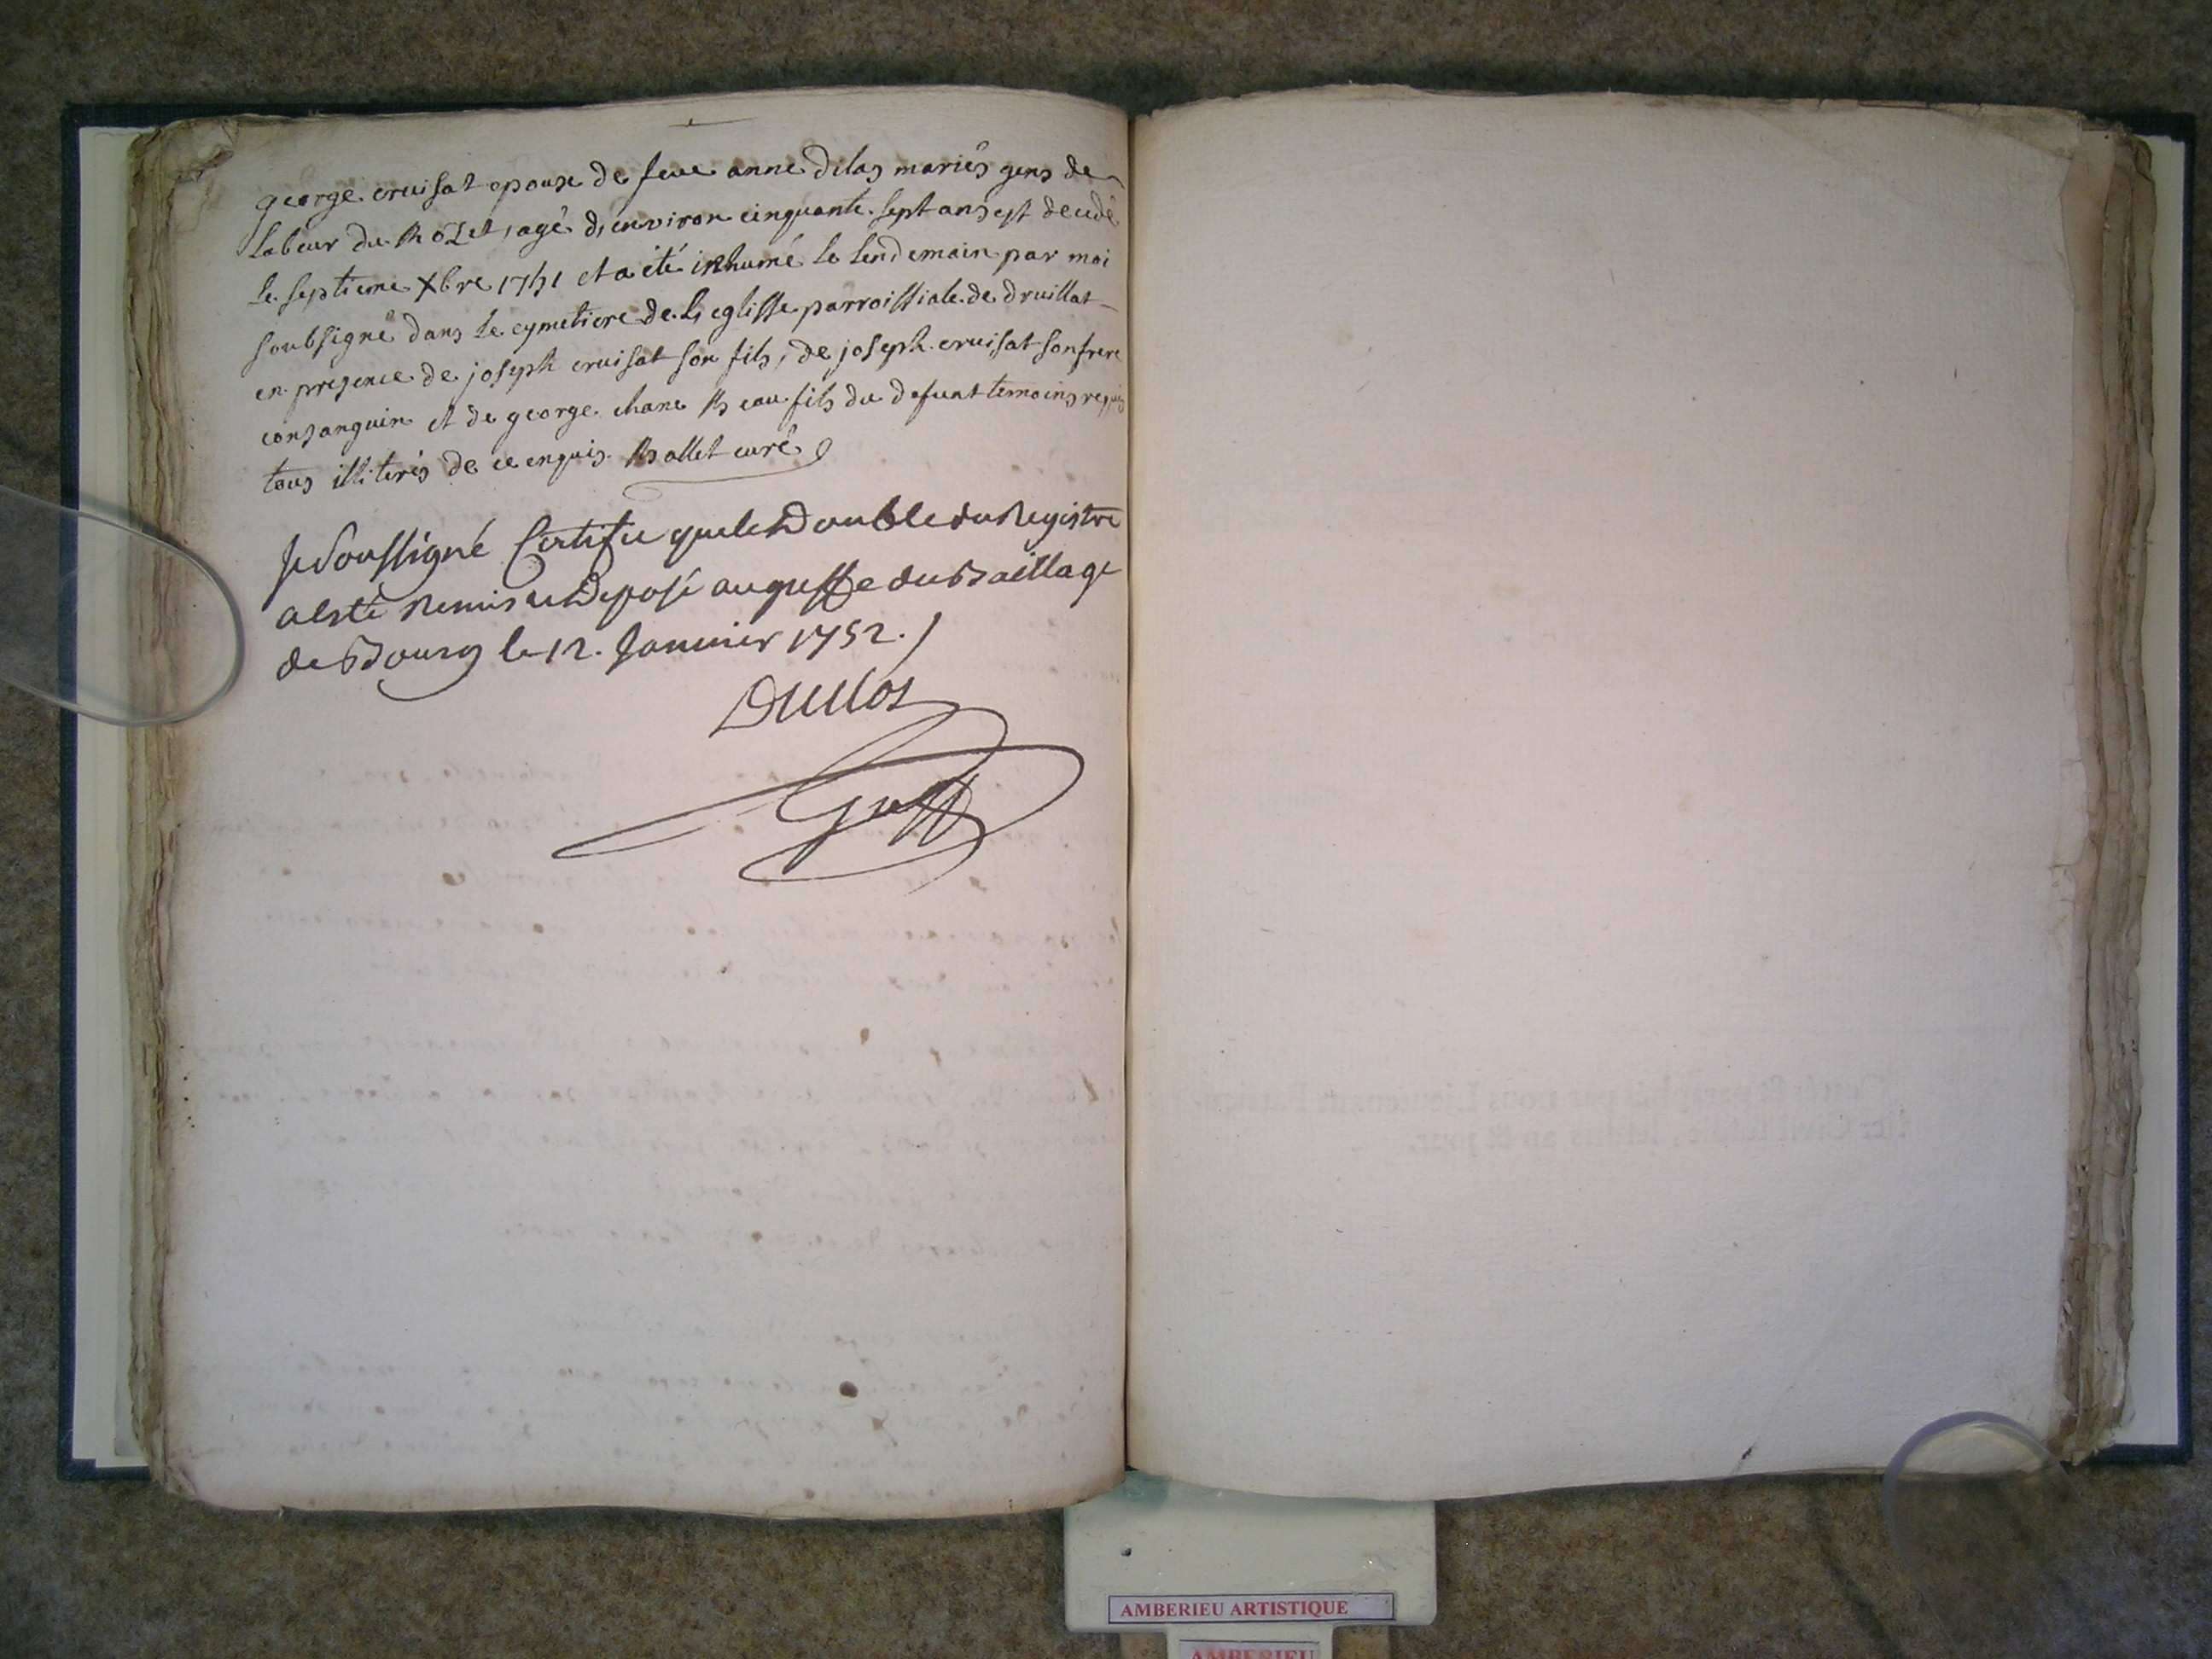 george cruisat epoux de feue anne dilas mariés gens de
labeur du Rozet, agé d, environ cinquante sept ans est decedé
le septieme Xbre 1751 et a été inhumé le lendemain par moi
soubsigné dans le cymetiere de l, eglisse parroissiale de druillat
en presence de joseph cruisat son fils, de joseph cruisat son frere
consanguin et de george chane Beau fils du defunt temoins requis
tous illiterés de ce enquis. Ballet curé
Je Soussigné Certifie que le Double du Registre
a esté Remis et Deposé au greffe du Baillage
de Bourg le 12. Janvier 1752.
Duclos
Greff
AMBERIEU ARTISTIQUE
AMBERIEU